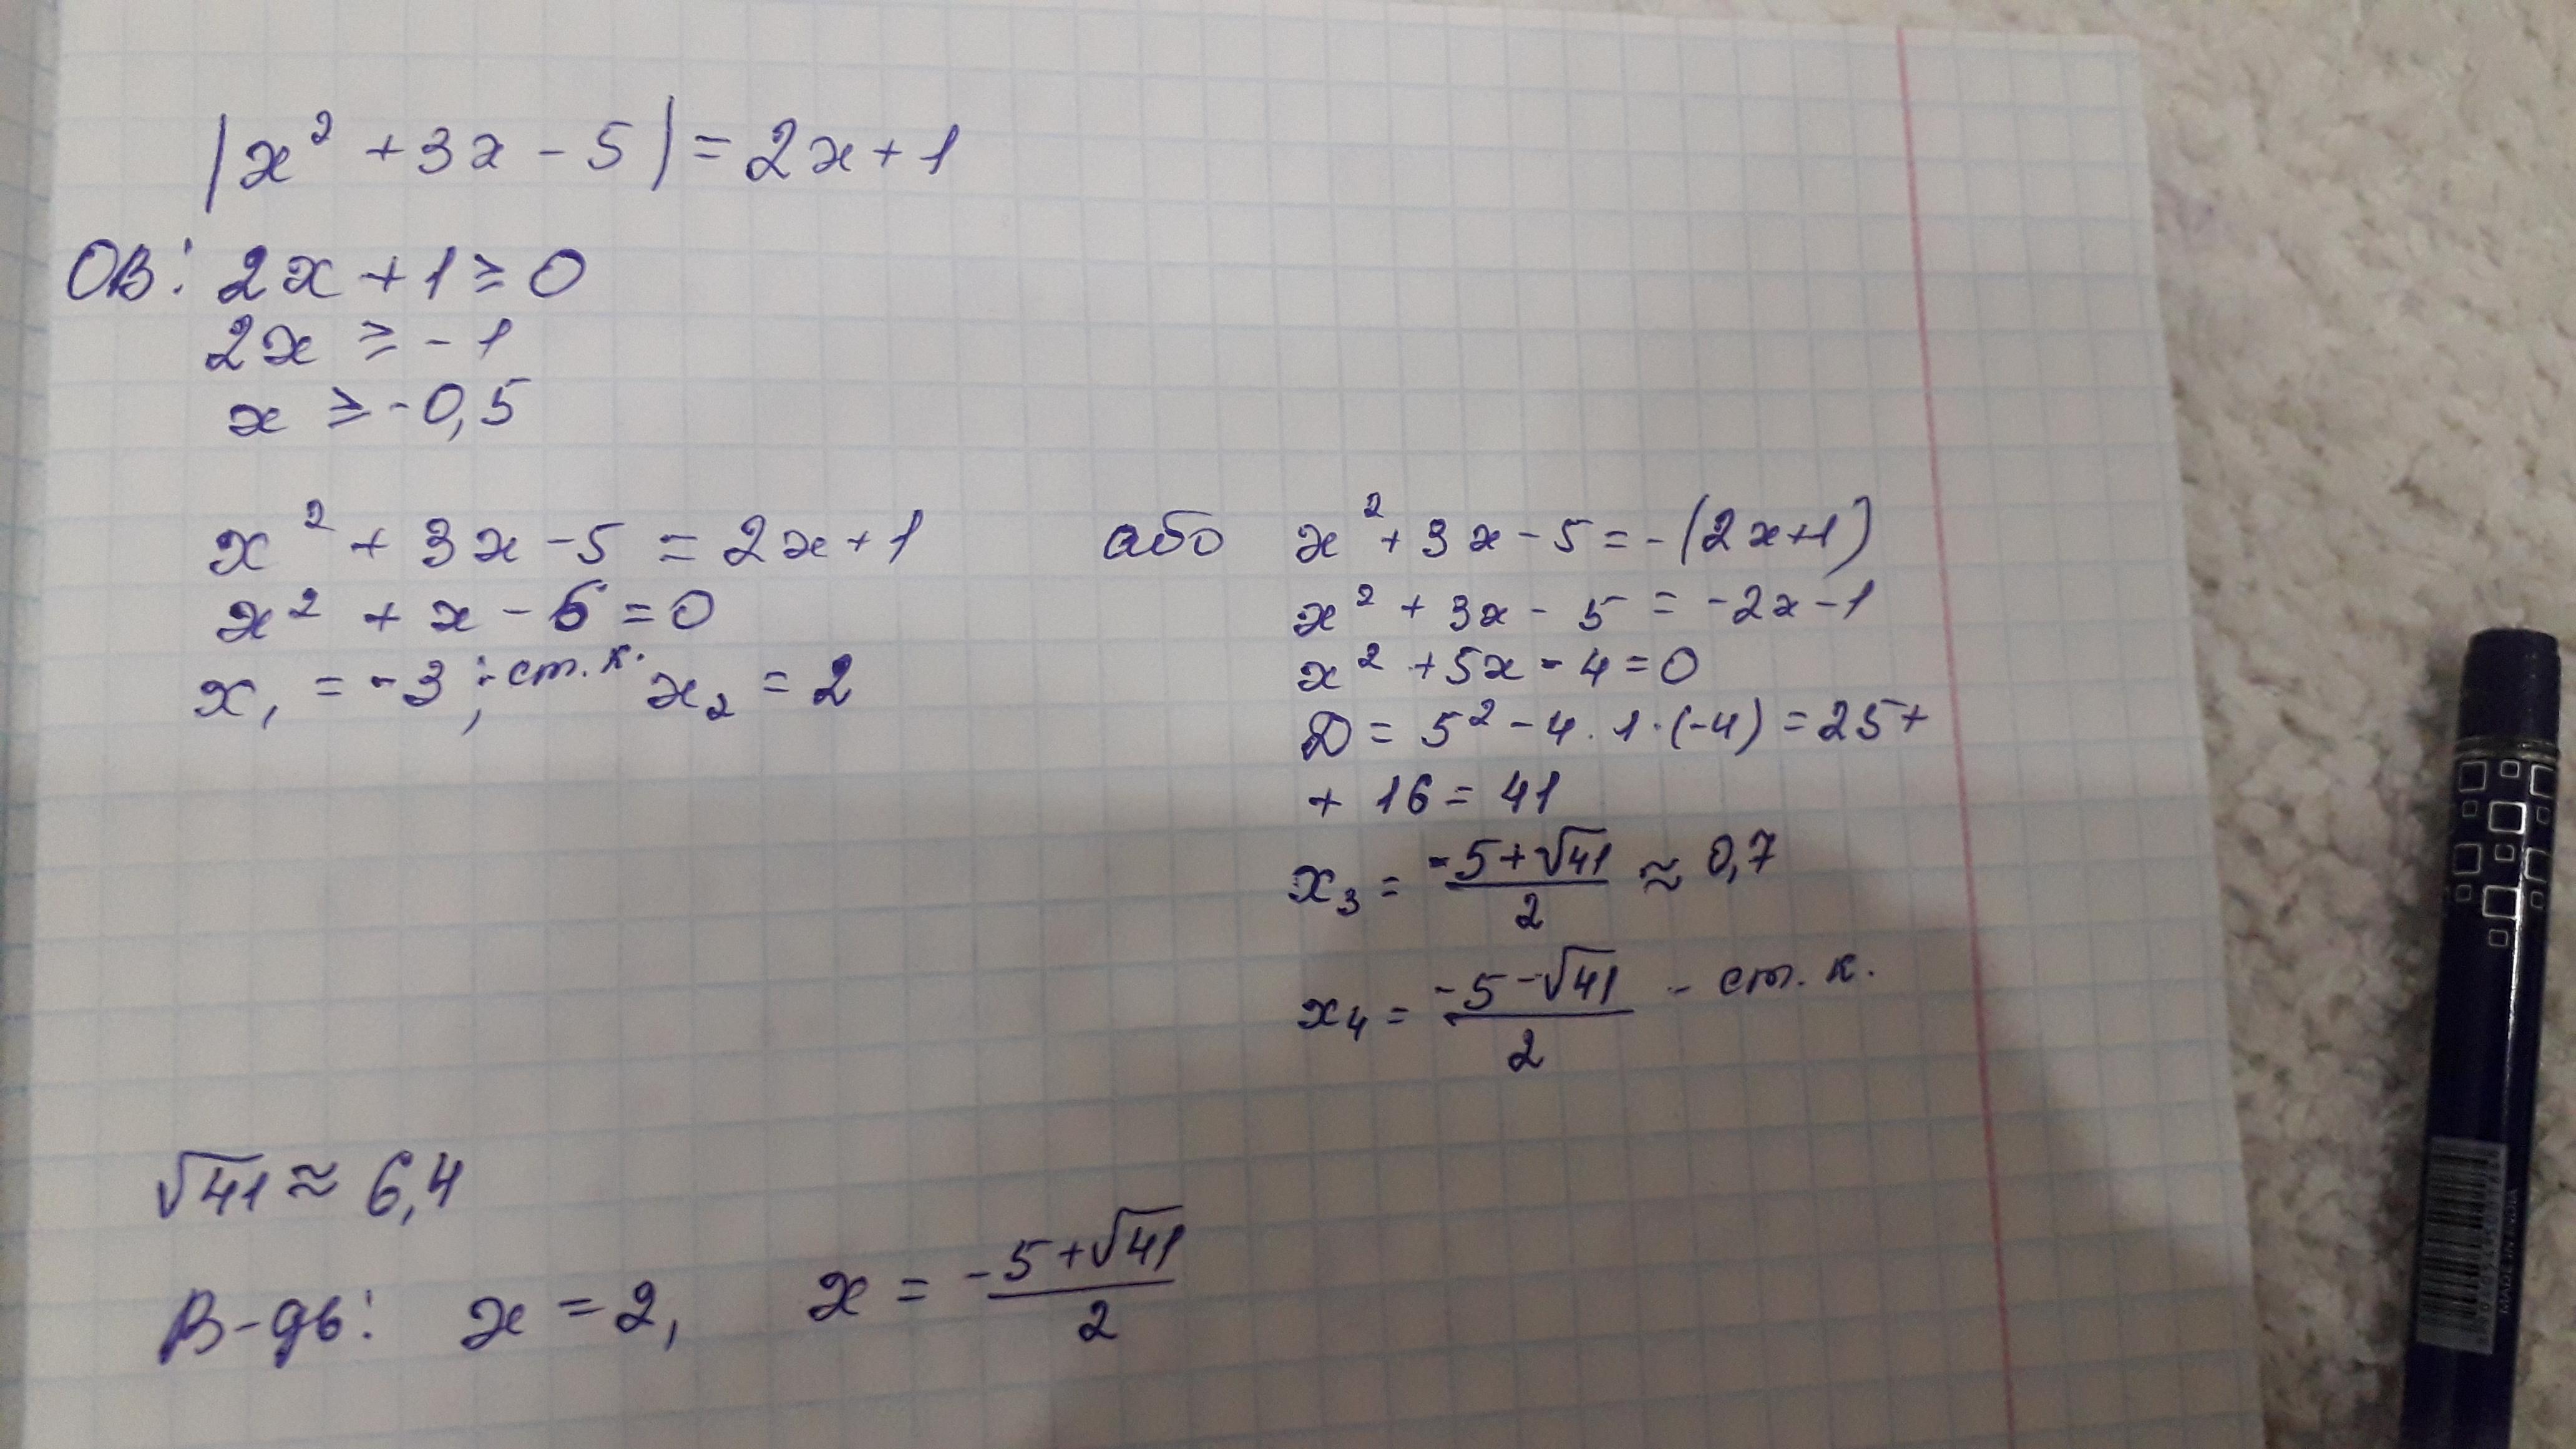 |x² + 3x - 5| = 2x + 1
ОВ: 2x + 1 ≥ 0
2x ≥ -1
x ≥ -0,5
x² + 3x - 5 = 2x + 1
x² + x - 6 = 0
x₁ = -3; - ст. к. x₂ = 2
або x² + 3x - 5 = -(2x+1)
x² + 3x - 5 = -2x - 1
x² + 5x - 4 = 0
D = 5² - 4 · 1 · (-4) = 25 +
+ 16 = 41
x₃ = (-5 + √41)/2 ≈ 0,7
x₄ = (-5 - √41)/2 - ст. к.
√41 ≈ 6,4
В-дь: x = 2, x = (-5 + √41)/2